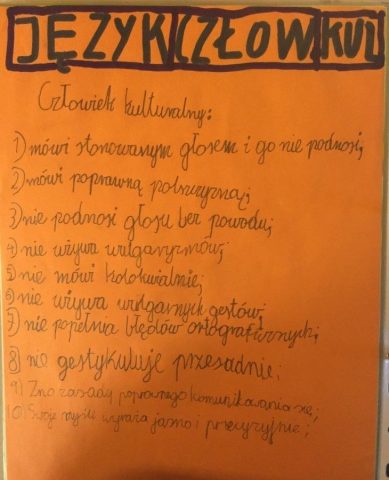 JĘZYK CZŁOW KUL
Człowiek kulturalny:
1) mówi stonowanym głosem i go nie podnosi;
2) mówi poprawną polszczyzną;
3) nie podnosi głosu bez powodu;
4) nie używa wulgaryzmów;
5) nie mówi kolokwialnie;
6) nie używa wulgarnych gestów;
7) nie popełnia błędów ortograficznych;
8) nie gestykuluje przesadnie;
9) Zna zasady poprawnego komunikowania się;
10) Swoje myśli wyraża jasno i precyzyjnie;